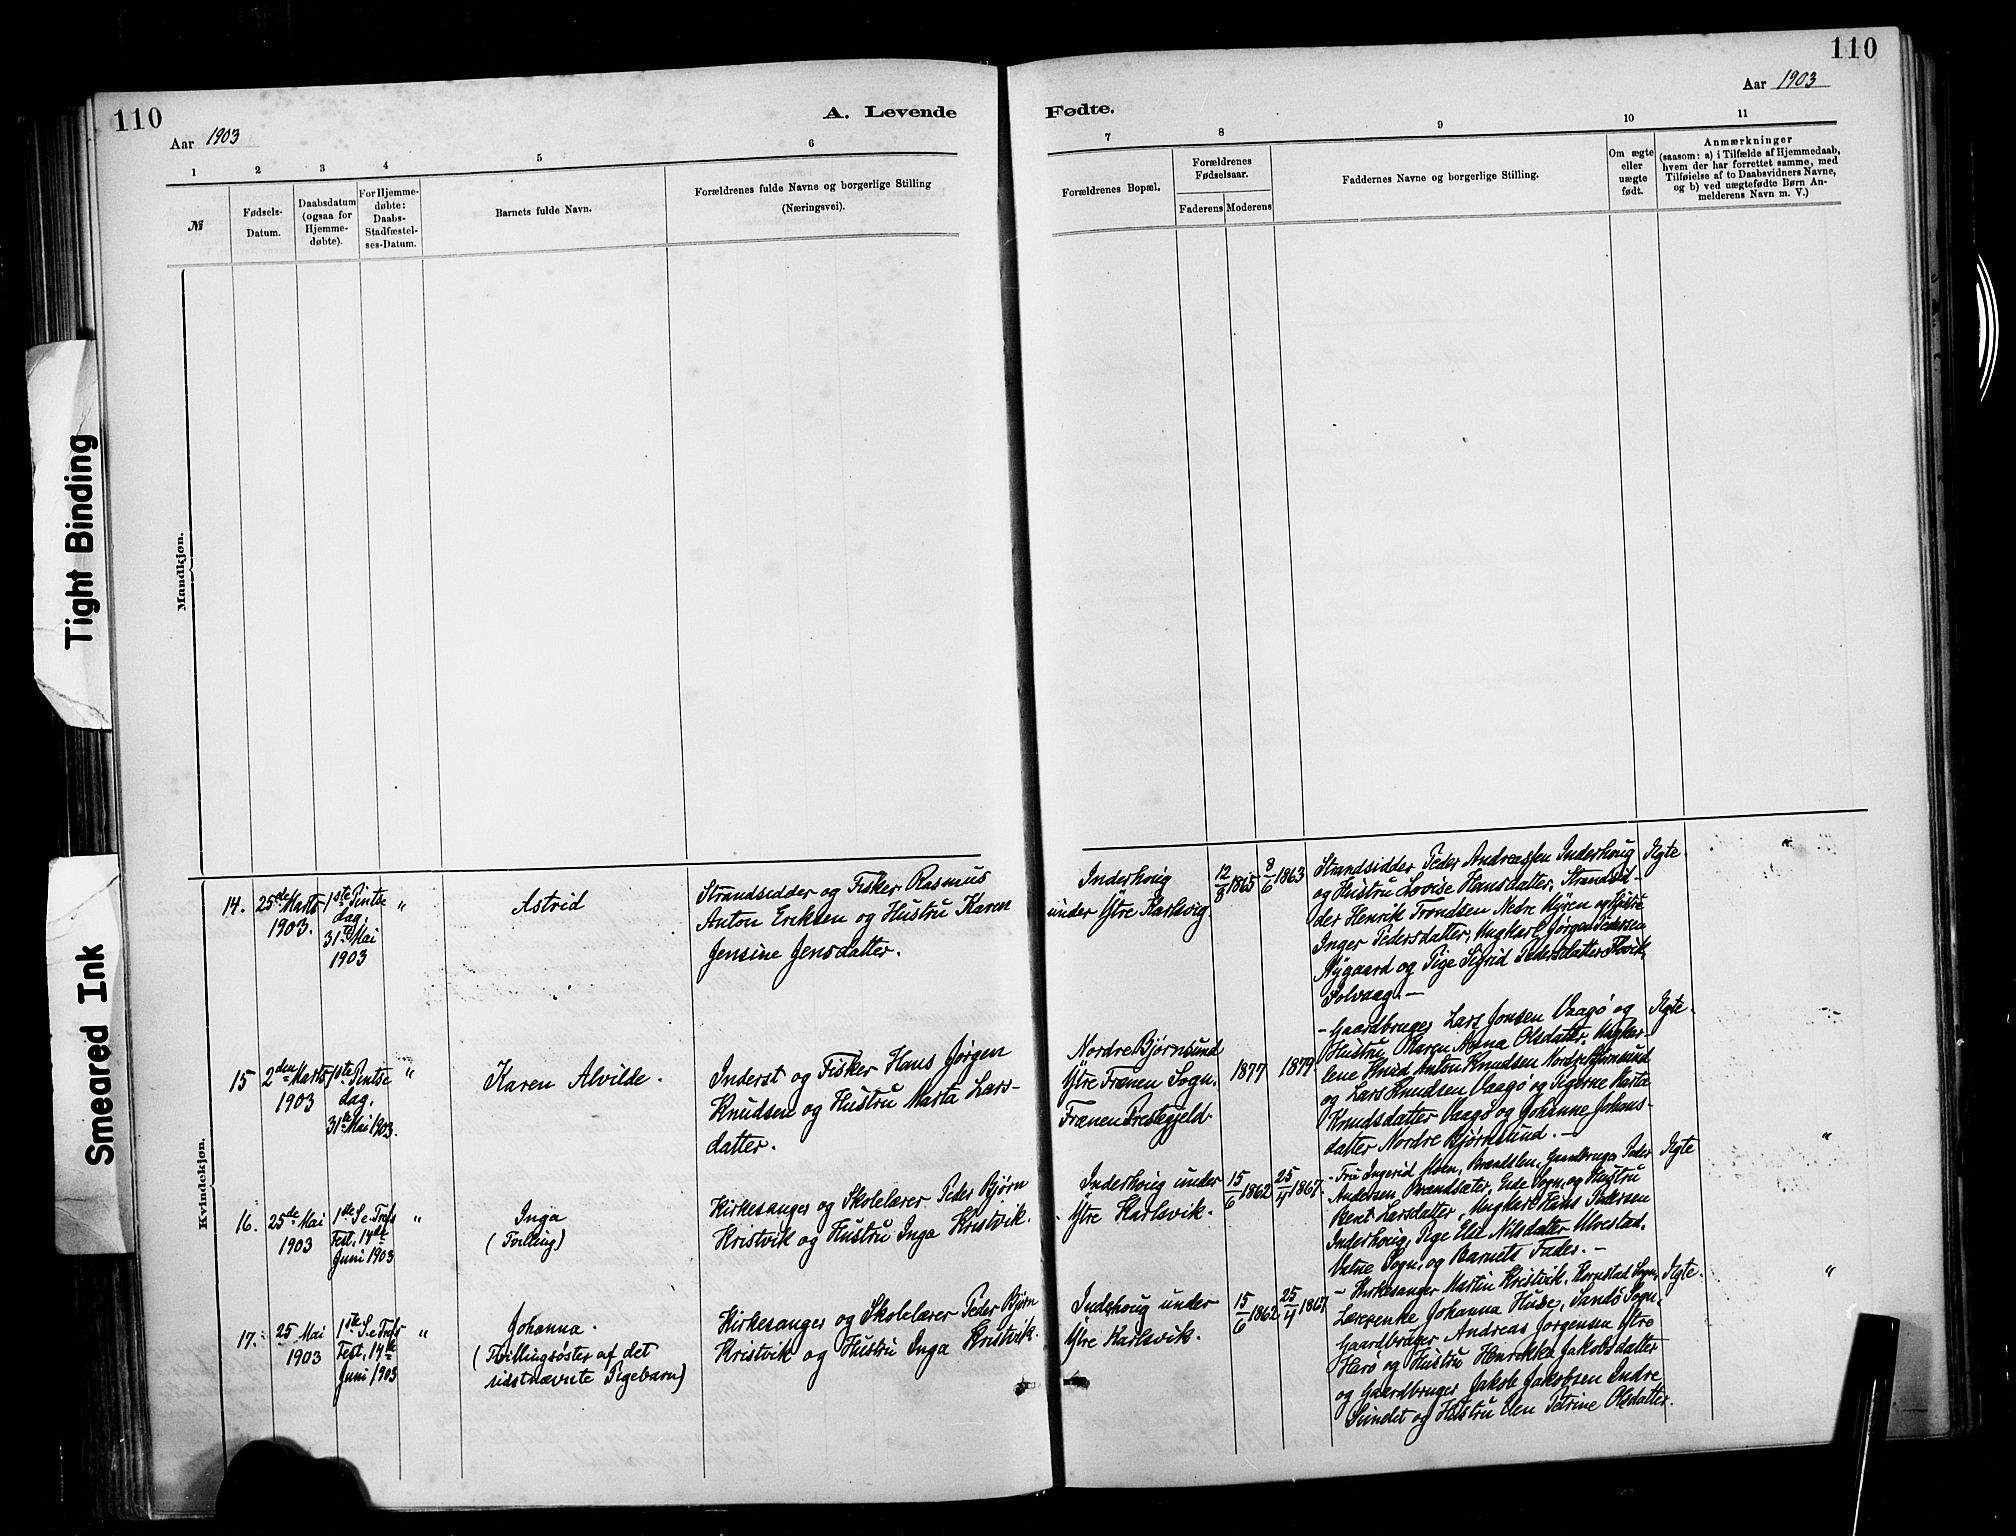 110
Aar 1903
A. Levende
Fødte.
Aar 1903
110
1 2 3 4 5 6
7 8 9 10 11
№
Fødsels-
Datum.
Daabsdatum
(ogsaa for
Hjemme-
døbte).
For Hjemme-
døbte:
Daabs-
Stadfæstel-
ses-Datum.
Barnets fulde Navn.
Forældrenes fulde Navne og borgerlige Stilling
(Næringsvei).
Forældrenes Bopæl.
Forældrenes
Fødselsaar.
Faderens Moderens
Faddernes Navne og borgerlige Stilling.
Om ægte
eller
uægte
født.
Anmærkninger
(saasom: a) i Tilfælde af Hjemmedaab,
hvem der har forrettet samme, med
Tilføielse af to Daabsvidners Navne,
og b) ved uægtefødte Børn An-
melderens Navn m. V.)
Tight Binding
Smeared Ink
Mandkjøn.
Kvindekjøn.
14.
25de Marts
1903.
1ste Pintse
dag,
31te Mai
1903
"
Astrid
Strandsidder og Fisker Rasmus
Anton Eriksen og Hustru Karen
Jensine Jensdatter.
Inderhoug
under Ytre Karlsvig
12/8 1865
8/6 1863
Strandsidder Peder Andreassen Inderhoug
og Hustru Lovise Hansdatter, Strandsid-
der Henrik Trondsen Nedre og Hustru
Inger Pedersdatter, Ungkarl Jørgen Pedersen
Nygaard og Pige Sigrid Pedersdatter
Solvaag. —
Ægte.
"
15
2den Marts
1903
1ste Pintse
dag,
31te Mai 1903.
"
Karen Alvilde.
Inderst og Fisker Hans Jørgen
Knudsen og Hustru Marta Lars-
datter.
Nordre Bjørnsund
Ytre Frænen Sogn.
Frænen Prestegjeld
1877
1879
- Gaardbruger Lars Jonsen Vaagø og
Hustru Karen Anna Olsdatter, Ungkar-
lene Knud Anton Knudsen Nordre Bjørnsund
og Lars Knudsen Vaagø og Pigerne Marta
Knudsdatter Vaagø og Johanne Johans-
datter Nordre Bjørnsund. —
Ægte.
"
16.
25de Mai
1903
1ste S. e. Trefs
Fest, 14de
Juni 1903
"
Inga
(Tvilling)
Kirkesanger og Skolelærer Peder Bjørn
Kristvik og Hustru Inga Kristvik.
Inderhoug under
Ytre Karlsvik.
15/6 1862
25/4 1867.
- Fru Ingerid Moen, Gaardbruger Peder
Andersen Brandsæter, Eide Sogn, og Hustru
Berit Larsdatter, Ungkarl Hans Pedersen
Inderhoug, Pige Nilsdatter Ulvestad,
Vatne Sogn, og Barnets Fader. —
Ægte
"
17.
25 Mai
1903
1ste S. e. Trefs
Fest, 14de
Juni 1903
"
Johanna.
(Tvillingsøster af det
sidstnævnte Pigebarn)
Kirkesanger og Skolelærer Peder Bjørn
Kristvik og Hustru Inga Kristvik.
Inderhoug under
Ytre Karlsvik.
15/6 1862
25/4 1867
- Kirkesanger Martin Kristvik, Kornstad Sogn,
Lærerenke Johanna Huse, Sandø Sogn,
Gaardbruger Andreas Jørgensen Ytre
Harø og Hustru Henrikke Jakobsdatter
og Gaardbruger Jakob Jakobsen Indre
Sundet og Hustru Elen Petrine Olsdatter.
Ægte.
"